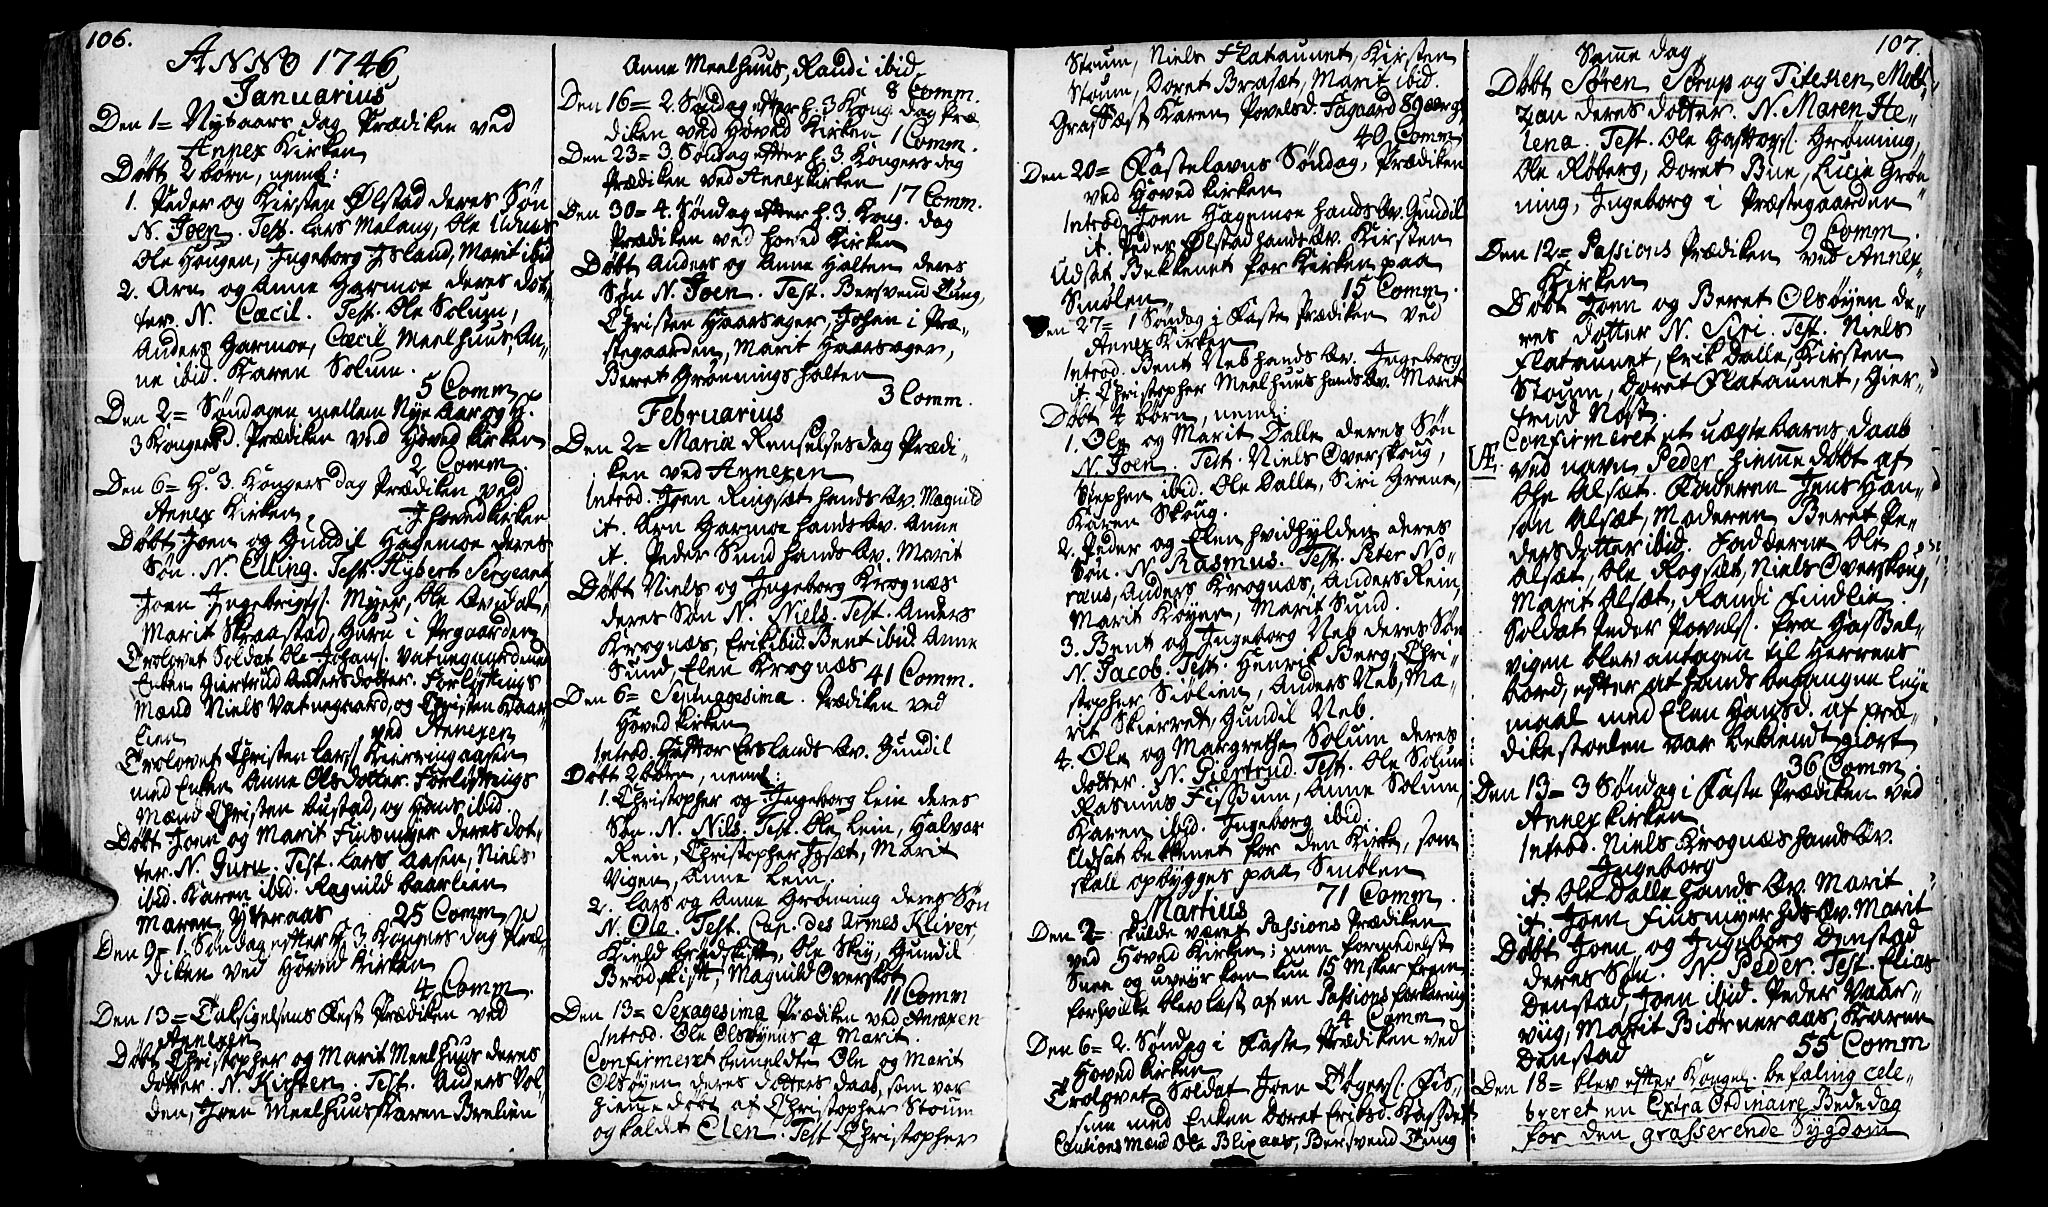 106.
ANNO 1746
Januarius
Den 1 = Nytaars dag Prædiken ved
Annex Kirken
Døbt 2 børn, neml:
1. Peder og Kirsten Ølstad deres Søn
N. Joen. Test. Lars Melang, Ole
Ole Haugen, Ingeborg Island, Marit ibid
2. Arn og Anne Harmoe deres dot-
ter. N. Cæcil. Test. Ole Solum,
Anders Harmoe, Cæcil Meelhuus, An-
ne ibid. Karen Solum.
5 Comm
Den 2 = Søndagen mellem Nye Aar og H.
3 Kongersd. Prædiken ved Hoved Kirken
2 Comm.
Den 6 = H. 3. Kongers dag Prædiken ved
Annex Kirken. I hoved Kirken
Døbt Joen og Gundil Hagemoe deres
Søn. N. Elling. Test. Sergeant
Joen Ingebrigts. Myer, Ole
Marit Skraastad, Guru i Prgaarden
Trolovet Soldat Ole Johans. Vatnegaarden med
Enken Giertrud Andersdotter. Forlovnings
Mænd Niels Vatnegaard, og Christen Kaar-
lien ved Annexen
Trolovet Christen Lars. Kierringaasen
med Enken Anne Olsdotter. Forlovnings
Mænd Christen bustad, og Hans ibid
Døbt Joen og Marit Finsmyer deres dot-
ter. N. Gurn. Test. Lars Aasen, Niels
ibid. Karen ibid. Ragnild baarlien
Maren Ytteraas 25 Comm
Den 9 = 1. Søndag efter H. 3. Kongers dag Præ-
diken ved Hoved Kirken
4 Comm.
Den 13 = Taksigelsens Fest Prædiken ved
Annexen
Døbt Christopher og Marit Meelhuus deres
dotter. N. Kirsten. Test. Anders Vol-
den, Joen Meelhuus Karen Brelien
Anne Meelhuus, Randi ibid.
8 Comm.
Den 16 = 2. Søndag efter h. 3 Kong. dag Præ-
diken ved Hoved Kirken 1 Comm.
Den 23 = 3. Søndag efter h. 3. Kongers dag
Prædiken ved Annexkirken
17 Comm.
Den 30 = 4. Søndag efter h. 3. Kong. dag
Prædiken ved hoved Kirken
Døbt Anders og Anne Holten deres
Søn N. Joen. Test. Bersvend Tung,
Christen Haarsager, Johan i Præ-
stegaarden, Marit Haarsager,
Beret Grønningsholten
3 Comm.
Februarius
Den 2 = Mariæ Renselses dag Prædi-
ken ved Annexen
Introd. Joen Ringsæt hands Qv. Magnild
it. Arn Harmoe hands Qv. Anne
it. Peder Sund hands Qv. Marit
Døbt Niels og Ingeborg Krognæs
deres Søn N. Niels. Test. Anders
Krognæs, Erik ibid Bent ibid Anne
Sund, Elen Krognæs
41 Comm.
Den 6 = Septuagesima. Prædiken ved
Hoved Kirken
Introd. Haftor Erslands Qv. Gundil
Døbt 2 børn, neml:
1. Christopher og Ingeborg Lein deres
Søn. N. Nils. Test. Ole Lein, Halvor
Rein, Christopher Jysæt, Marit
Vigen, Anne Lein.
2. Lars og Anne Grøning deres Søn
N. Ole. Test. Cap. des Armes Kliver,
Kield brødskift, Ole Sky, Gundil
Brødskift, Magnild Overskot
11 Comm
Den 13 = Sexagesima Prædiken ved Annexen
Introd. Ole Olsøyens Q Marit.
Confirmeret bemeldte Ole og Marit
Olsøyen deres dotters daab, som var
hiemmedøbt af Christopher Stoum
og kaldet Elen. Test Christopher
Stoum, Niels Flataunet, Kirsten
Stoum, Doret Brasæt, Marit ibid.
Græsfæst Karen Povelsd. Fagaard 89 aar
49 Comm
Den 20 = Fastelavns Søndag, Prædiken
ved Hoved Kirken
Introd. Joen Hagemoe hands Qv. Gundil
it. Peder Ølstad hands Qv. Kirsten
Udsat Bekkenet for Kirken paa
Smølen
15 Comm.
Den 27 = 1 Søndag i Faste Prædiken ved
Annex Kirken
Introd. Bent Neb hands Qv. Ingeborg
it. Christopher Meelhuus hands Qv. Marit
Døbt 4 børn, neml:
1. Ole og Marit Dalle deres Søn
N. Joen. Test. Niels Overskoug,
Stephen ibid. Ole Dalle, Siri Grene,
Karen Skoug.
2. Peder og Elen hvidhylden deres
Søn. N Rasmus. Test. Peter No-
raus, Anders Krognæs, Anders Rein,
Marit Krøyer, Marit Sund.
3. Bent og Ingeborg Neb deres Søn
N. Jacob. Test. Henrik Berg, Chri-
stopher Siølien, Anders Neb, Ma-
rit Skierret, Gundil Neb.
4. Ole og Margrethe Solum deres
dotter. N. Giertrud. Test. Ole Solum
Rasmus Fissum, Anne Solum,
Karen ibid. Ingeborg ibid.
Udsat bekkenet for den Kirke, som
skall opbygges paa Smølen
71 Comm.
Martius
Den 2 = skulde været Passions Prædiken
ved Hoved Kirken; men formedelst
Snee og uveyr kom kun 15 Msker frem
forhvilke blev læst af en Passions forklaring
4 Comm
Den 6 = 2. Søndag i Faste Prædiken ved
Hoved Kirken
Trolovet Soldat Joen Tøgers. Fis-
sum med Enken Doret Eriksd.
Cautions Mænd Ole Blixaas, Bersvend Tung
107.
Samme dag
Døbt Søren Sørup og Titessen Molt-
zan deres dotter. N. Maren He-
lena. Test. Ole Haftors. Grønning,
Ole Røberg, Doret Bue, Lucie Grøn-
ning, Ingeborg i Præstegaarden
9 Comm.
Den 12 = Passions Prædiken ved Annex-
Kirken
Døbt Joen og Beret Olsøyen de-
res dotter N. Siri. Test. Niels
Flataunet, Erik Dalle, Kirsten
Stoum, Doret Flataunet, Gier-
trud Nøst.
Æ. Confirmeret et uægte barns daab
ved navn Peder hiemmedøbt af
Ole Alsæt. Faderen Jens Han-
søn Alsæt, Moderen Beret Pe-
dersdotter ibid. Fadderne Ole
Alsæt, Ole Rogsæt, Niels Overskoug,
Marit Alsæt, Randi Findlie.
Soldat Peder Povels. fra Hassel-
vigen blev antagen til Herrens
bord, efter at hands begangne Leye
maal med Elen Hansd. af præ-
dikestoelen var bekiendt giort
36 Comm.
Den 13 = 3 Søndag i Faste Prædiken ved
Annexkirken
Introd. Niels Krognæs hands Qv.
Ingeborg
it. Ole Dalle hands Qv. Marit
it. Joen Finsmyer hds Qv. Marit
Døbt Joen og Ingeborg Denstad
deres Søn. N. Peder. Test. Elias
Denstad, Joen ibid. Peder Vaar-
viig, Marit Biørneraas, Karen
Denstad
55 Comm
Den 18 = blev efter Kongel. befaling cele-
breret en Extra Ordinaire Bededag
for den grasserende Sygdom